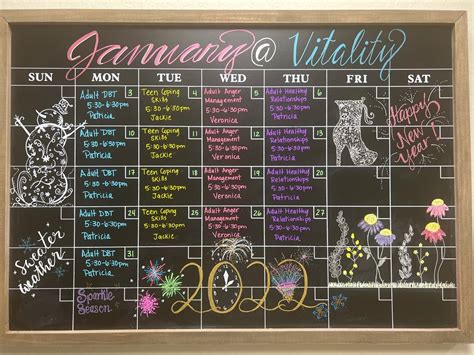 January @ Vitality
SUN MON TUE WED THU FRI SAT
Adult DBT 3
5:30-6:30pm
Patricia
Teen Coping 4
Skills
5:30-6:30pm
Jackie
Adult Anger 5
Management
5:30-6:30pm
Veronica
Adult Healthy 6
Relationships
5:30-6:30pm
Veronica
Happy
New
year
Adult DBT 10
5:30-6:30pm
Patricia
Teen Coping 11
Skills
5:30-6:30pm
Jackie
Adult Anger 12
Management
5:30-6:30pm
Veronica
Adult Healthy 13
Relationships
5:30-6:30pm
Veronica
Adult DBT 17
5:30-6:30pm
Patricia
Teen Coping 18
Skills
5:30-6:30pm
Jackie
Adult Anger 19
Management
5:30-6:30pm
Veronica
Adult Healthy 20
Relationships
5:30-6:30pm
Veronica
Sweater
weather
Adult DBT 24
5:30-6:30pm
Patricia
Teen Coping 25
Skills
5:30-6:30pm
Jackie
Adult Anger 26
Management
5:30-6:30pm
Veronica
Adult Healthy 27
Relationships
5:30-6:30pm
Veronica
Adult DBT 31
5:30-6:30pm
Patricia
Sparkle
Season
2022